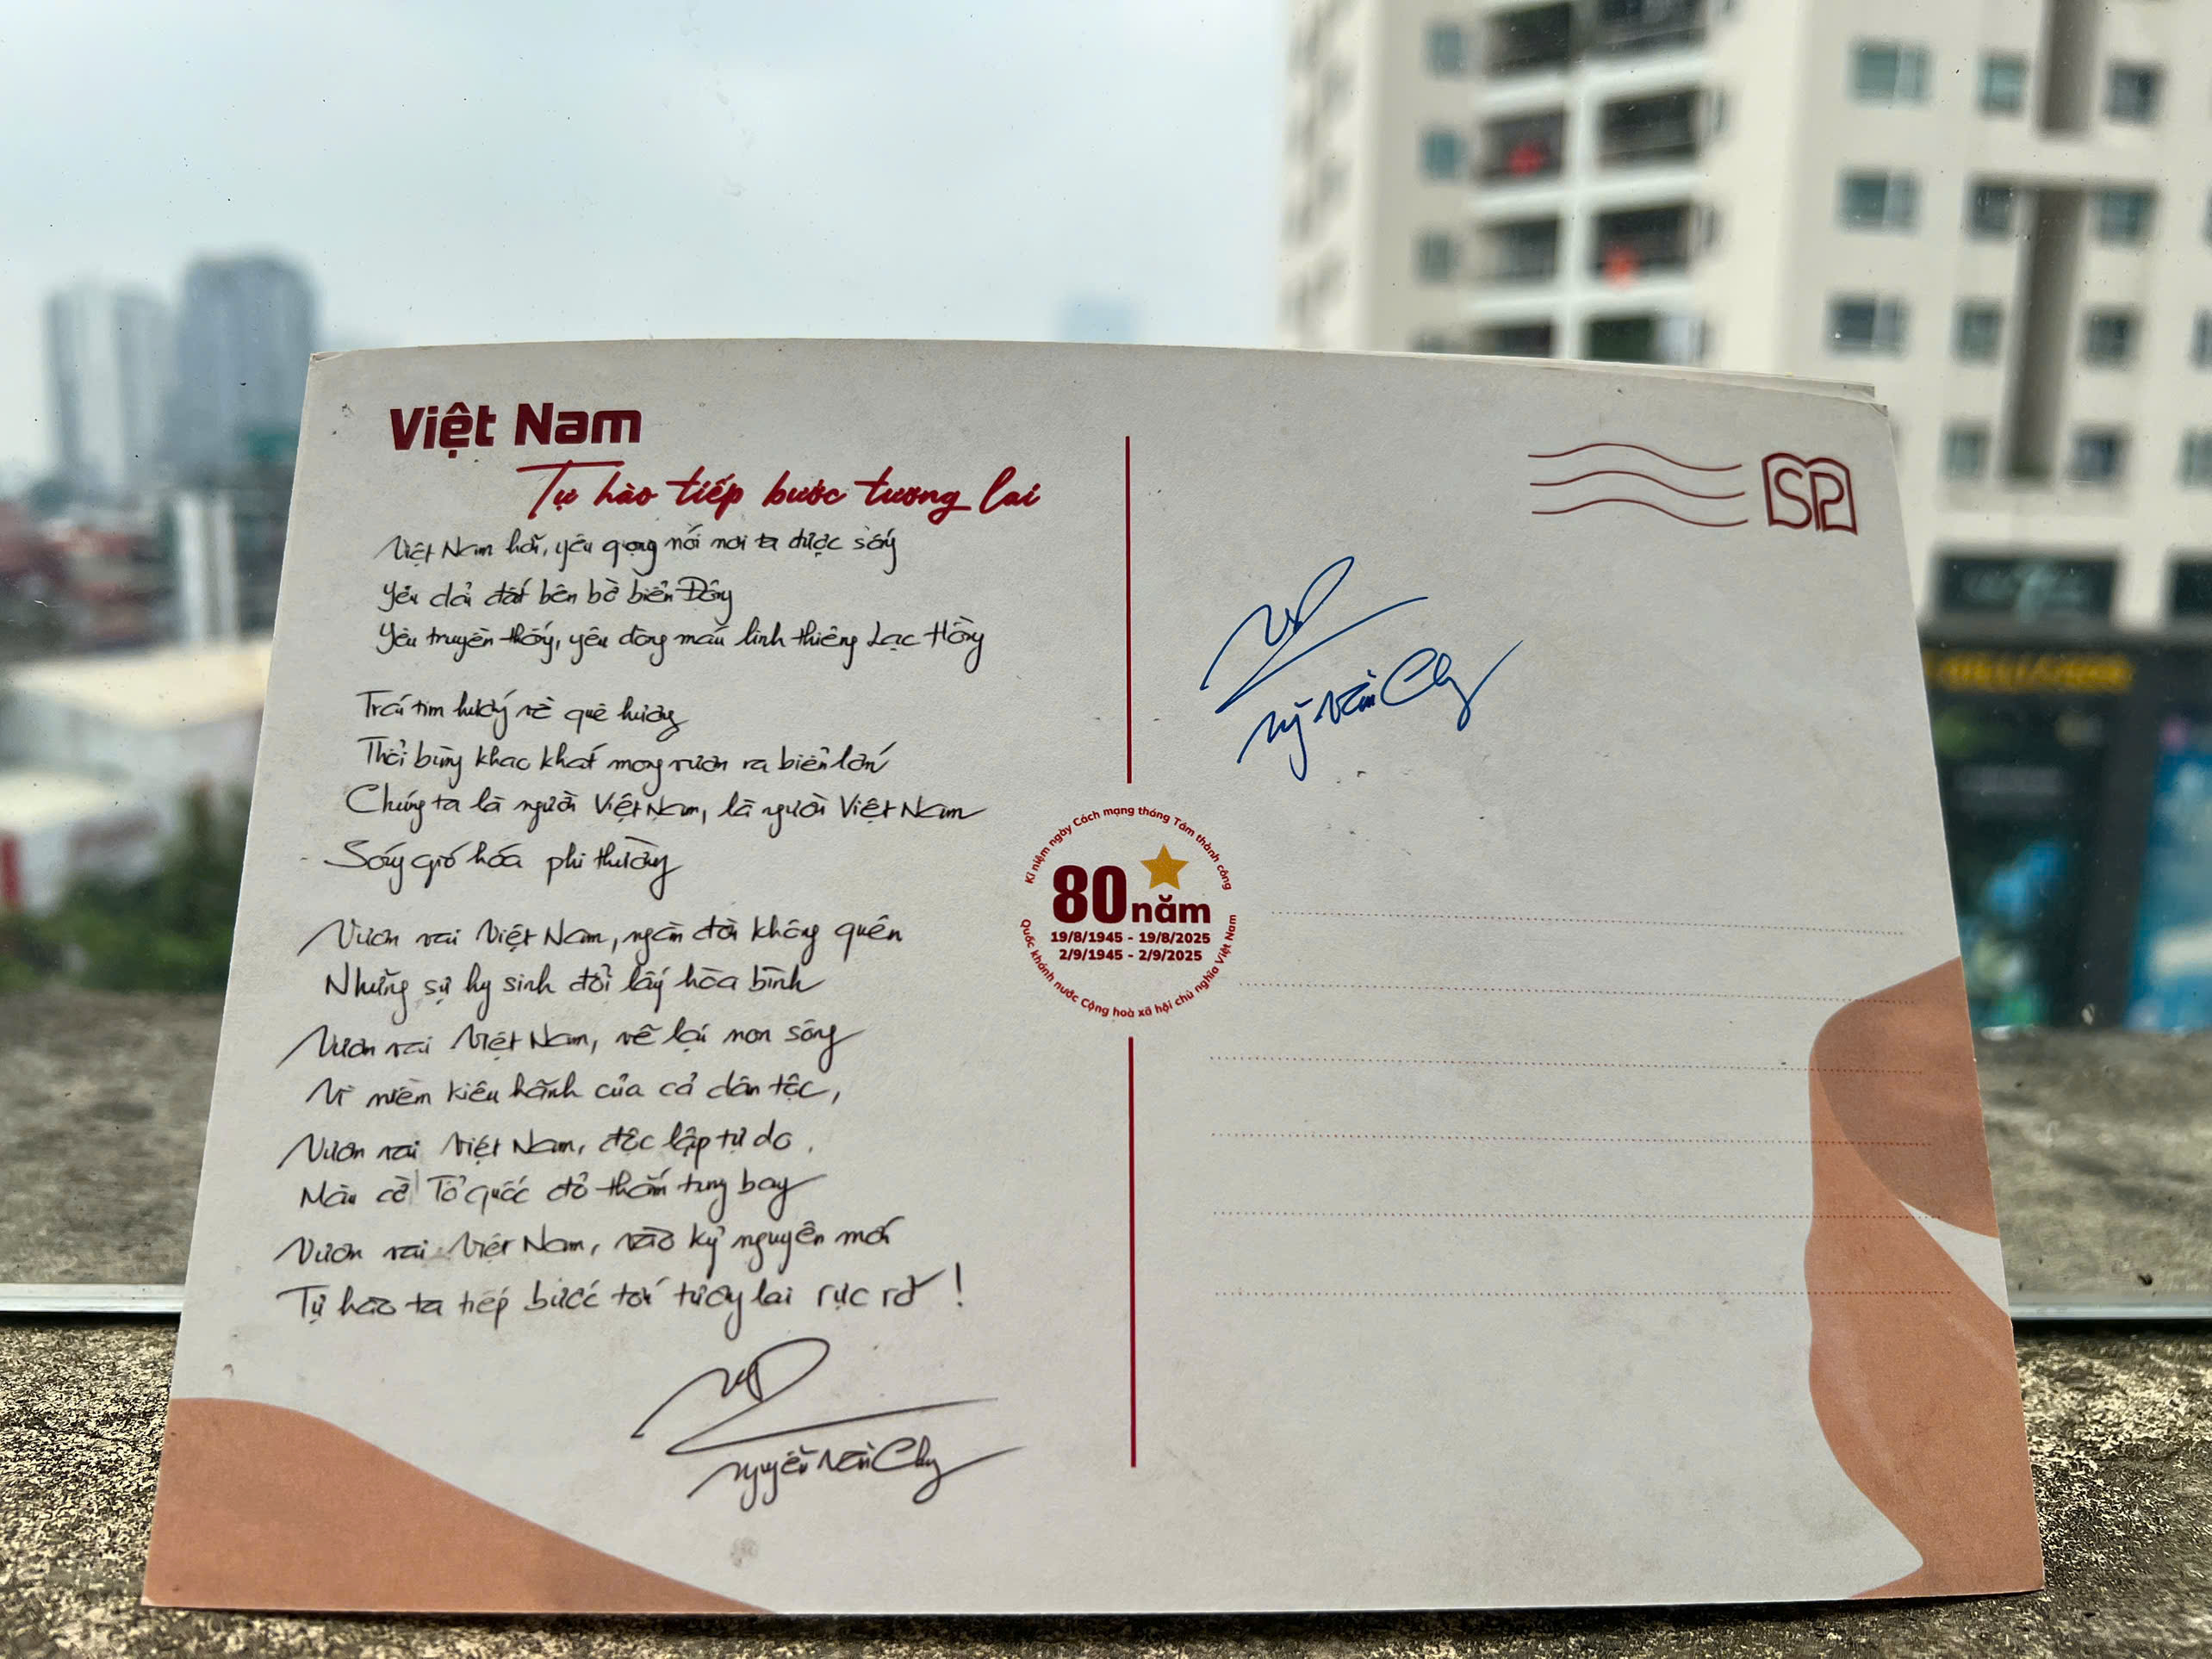 Việt Nam
Tự hào tiếp bước tương lai
Việt Nam hỡi, yêu ngọn núi nơi ta được sống
Yêu dải đất bên bờ biển Đông
Yêu truyền thống, yêu dòng máu linh thiêng Lạc Hồng
Trái tim hướng về quê hương
Thổi bùng khao khát mong vươn ra biển lớn
Chúng ta là người Việt Nam, là người Việt Nam
Sóng gió hóa phi thường
Vươn vai Việt Nam, ngàn đời không quên
Những sự hy sinh đổi lấy hòa bình
Vươn vai Việt Nam, vẽ lại non sông
Vì niềm kiêu hãnh của cả dân tộc,
Vươn vai Việt Nam, độc lập tự do.
Màu cờ Tổ quốc đỏ thắm tung bay
Vươn vai Việt Nam, vào kỷ nguyên mới
Tự hào ta tiếp bước tới tương lai rực rỡ!
Nguyễn Văn Chung
SP
Ng Văn Chung
Kỉ niệm ngày Cách mạng tháng Tám thành công
80 năm
19/8/1945 - 19/8/2025
2/9/1945 - 2/9/2025
Quốc khánh nước Cộng hoà xã hội chủ nghĩa Việt Nam